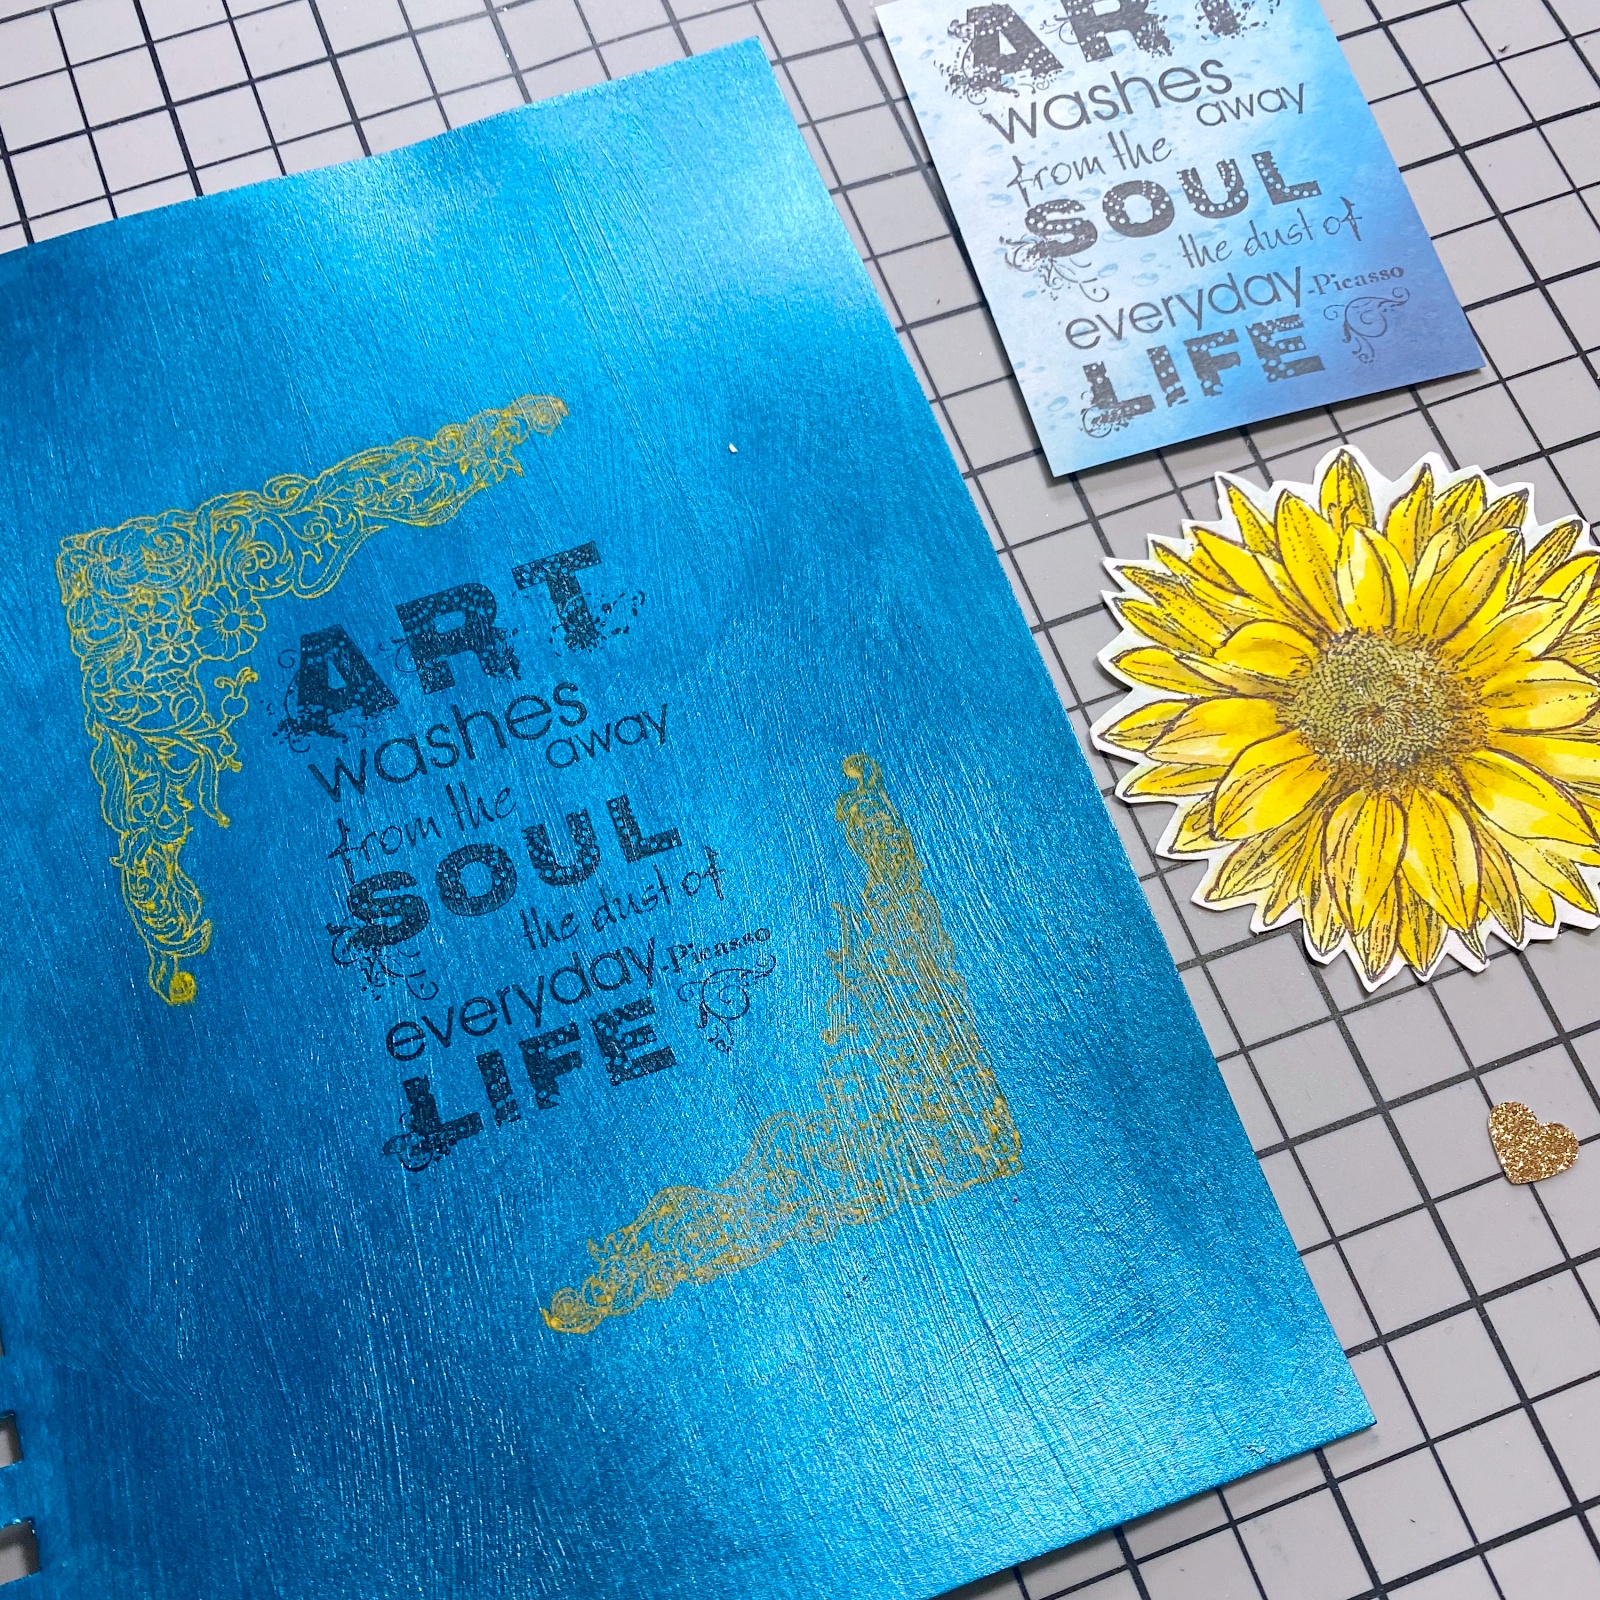 ART
washes
away
from the
SOUL
the dust of
everyday -Picasso
LIFE
ART
washes
away
from the
SOUL
the dust of
everyday -Picasso
LIFE